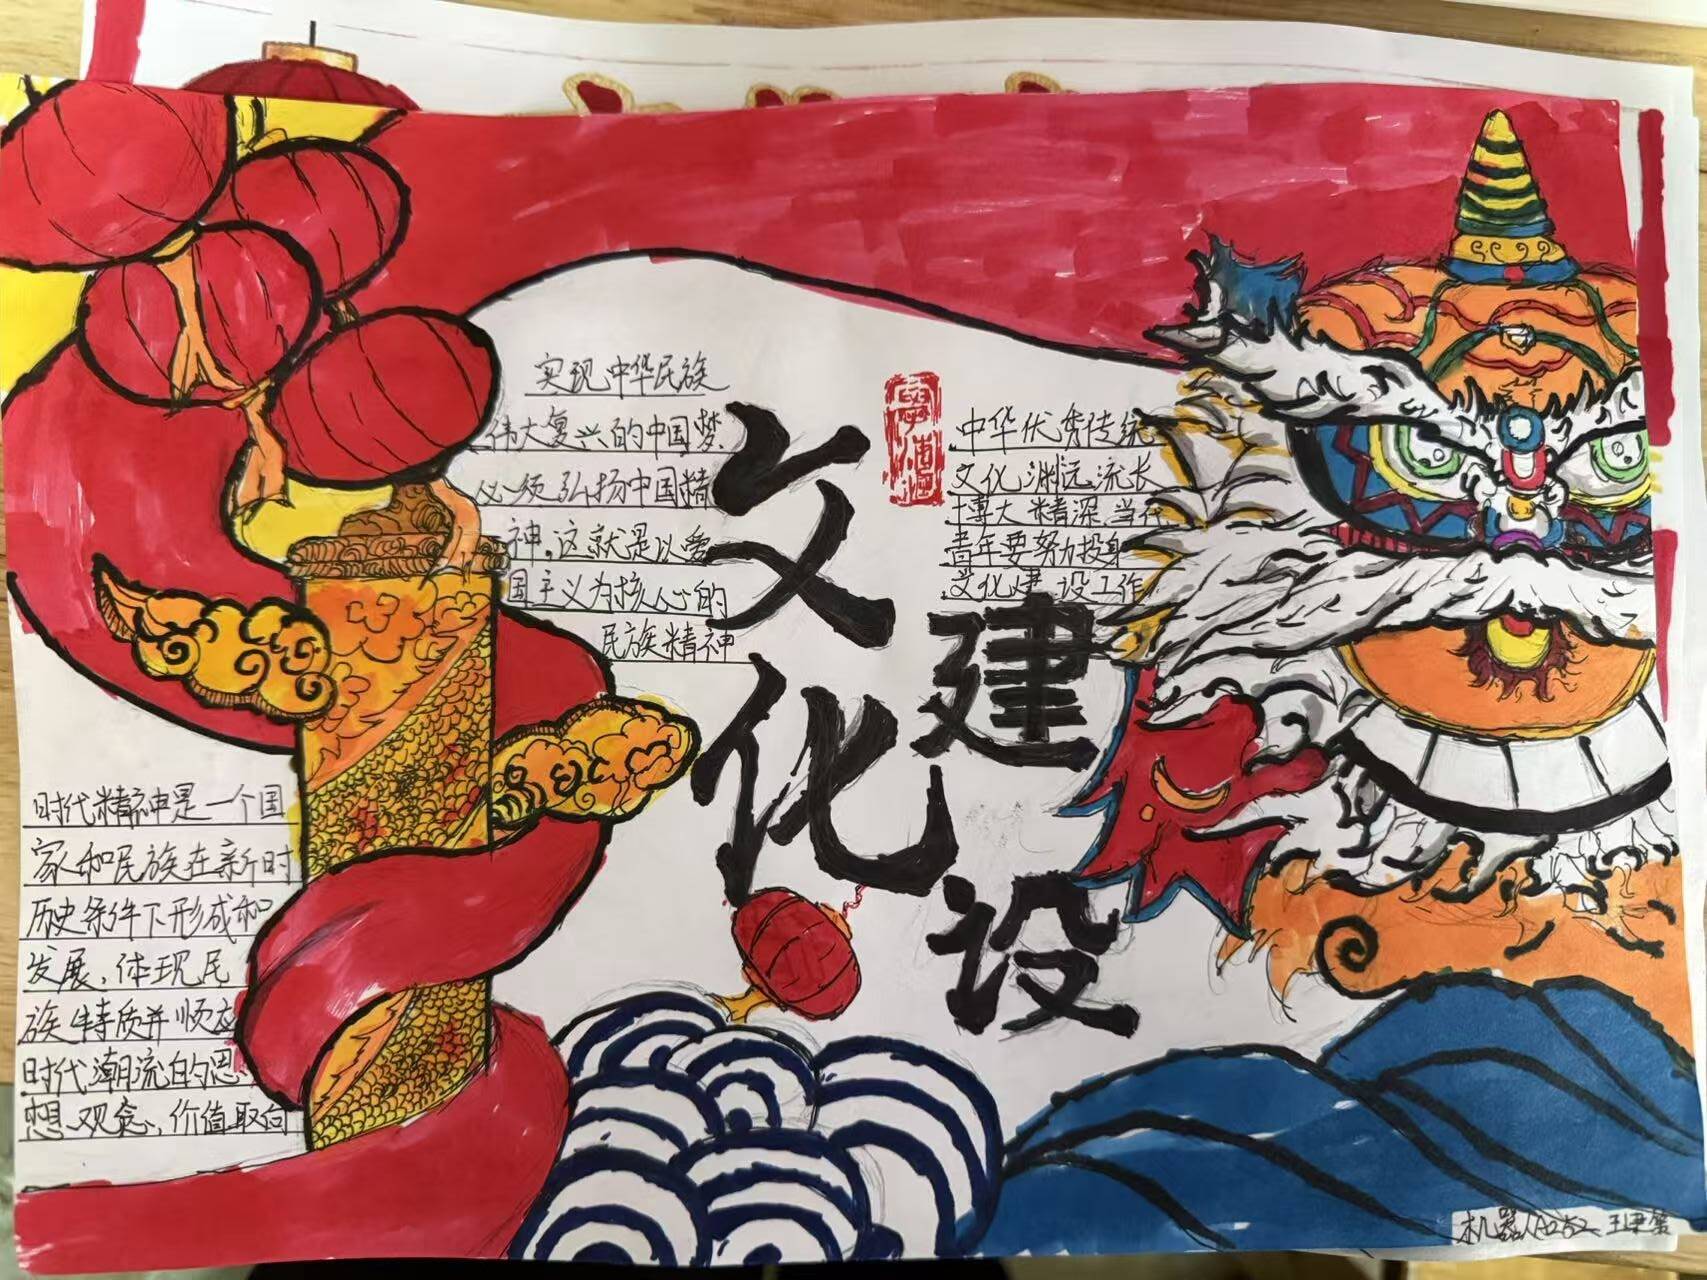 实现中华民族
伟大复兴的中国梦
必须弘扬中国精
神。这就是以爱
国主义为核心的
民族精神
文化
建设
中华优秀传统
文化渊远流长
博大精深,当代
青年要努力投身
文化建设工作
时代精神是一个国
家和民族在新时
历史条件下形成和
发展,体现民
族特质并顺应
时代潮流的思
想观念,价值取向
机器人